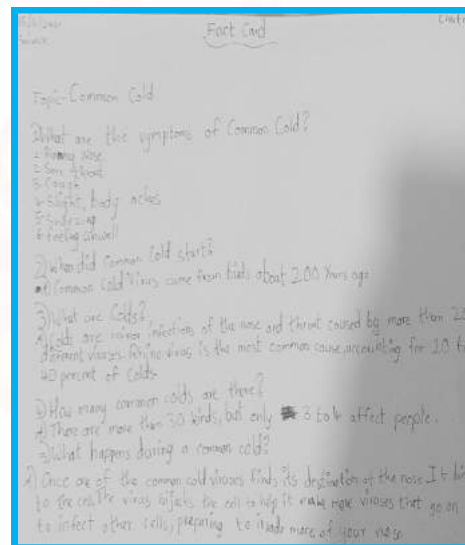 Fact Card
Topic- Common Cold
1) What are the symptoms of Common Cold?
1- Runny Nose
2- Sore throat
3- Cough
4- Slight, body aches
5- Sneezing
6- feeling unwell
2) When did common Cold start?
A) Common Cold Virus came from birds about 200 Years ago
3) What are Colds?
A) Colds are minor infections of the nose and throat caused by more than
different viruses. is the most common cause, accounting for 10 to
40 percent of Colds-
4) How many common colds are there?
A) There are more than 30 kinds, but only 3 to 4 affect people.
5) What happens during a common cold?
A) Once one of the common cold viruses finds its destination of the nose It
to the cell. the virus the cell to help it make more viruses that go on
to infect other cells, preparing to invade more of your nose